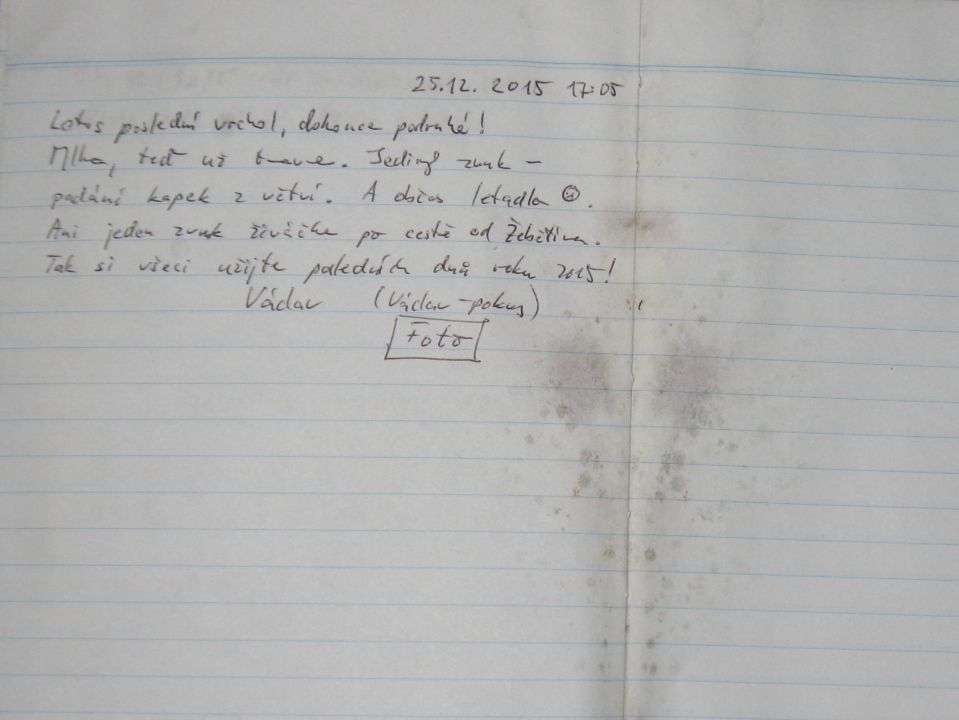 25.12. 2015 17:05
Letos poslední vrchol, dokonce podruhé!
Mlha, teď už tma. Jediný zvuk –
padání kapek z větví. A občas letadla ☹.
Ani jeden zvuk živáčka po cestě od Žebětína.
Tak si všeci užijte posledních dnů roku 2015!
Václav (Václav-pokus)
Foto